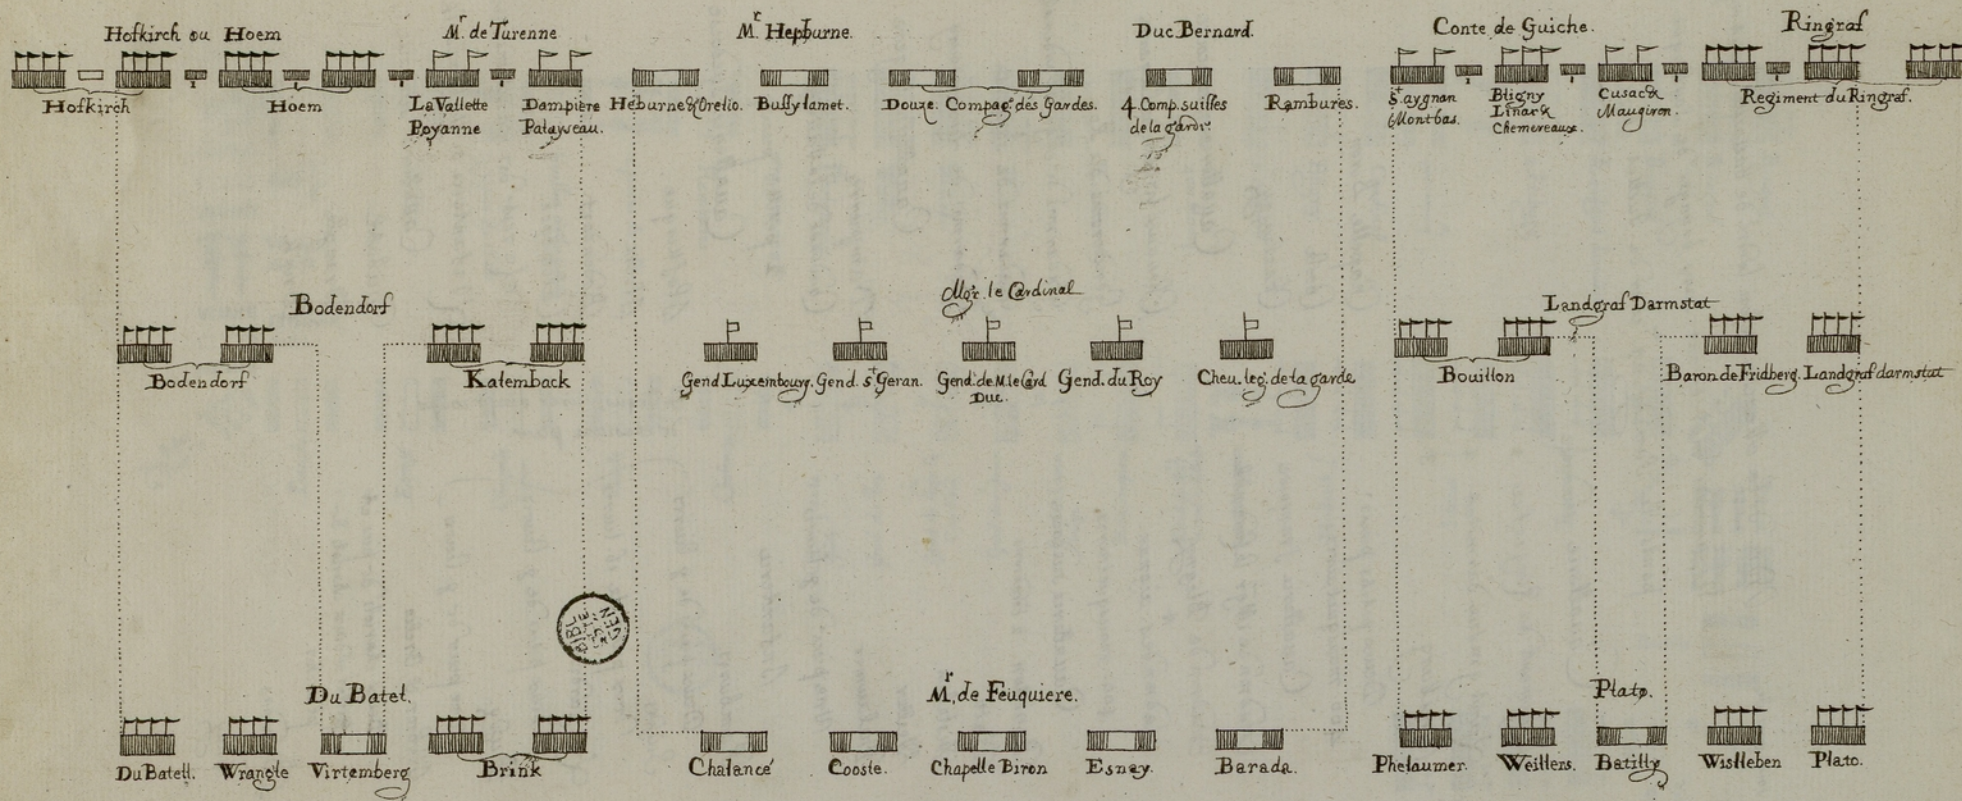 Hofkirch ou Hoem
Mr. de Turenne
Mr. Hepburne.
Duc Bernard.
Conte de Guiche.
Ringraf
Hofkirch
Hoem
La Vallette
Poyanne
Dampiere
Palayseau.
Heburne & Orelio.
Bussy lamet.
Douze. Compag. des Gardes.
4. Comp. suisses
de la garde.
Rambures.
St. aygnan
Montbas.
Bligny
Linars
Chemereaux.
Cusack
Maugiron.
Regiment du Ringraf.
Bodendorf
Mgr. le Cardinal
Landgraf Darmstat
Bodendorf
Kalemback
Gend Luxembourg.
Gend. St Geran.
Gend. de M. le Card
Duc.
Gend. du Roy
Cheu. leg. de la garde
Bouillon
Baron de Fridberg.
Landgraf darmstat
BIBL
Du Batel.
Mr. de Feuquiere.
Plato.
Du Batell.
Wrangle
Virtemberg
Brink
Chalancé
Cooste.
Chapelle Biron
Esney.
Barada.
Phelaumer.
Weitlers.
Batilly
Wistleben
Plato.